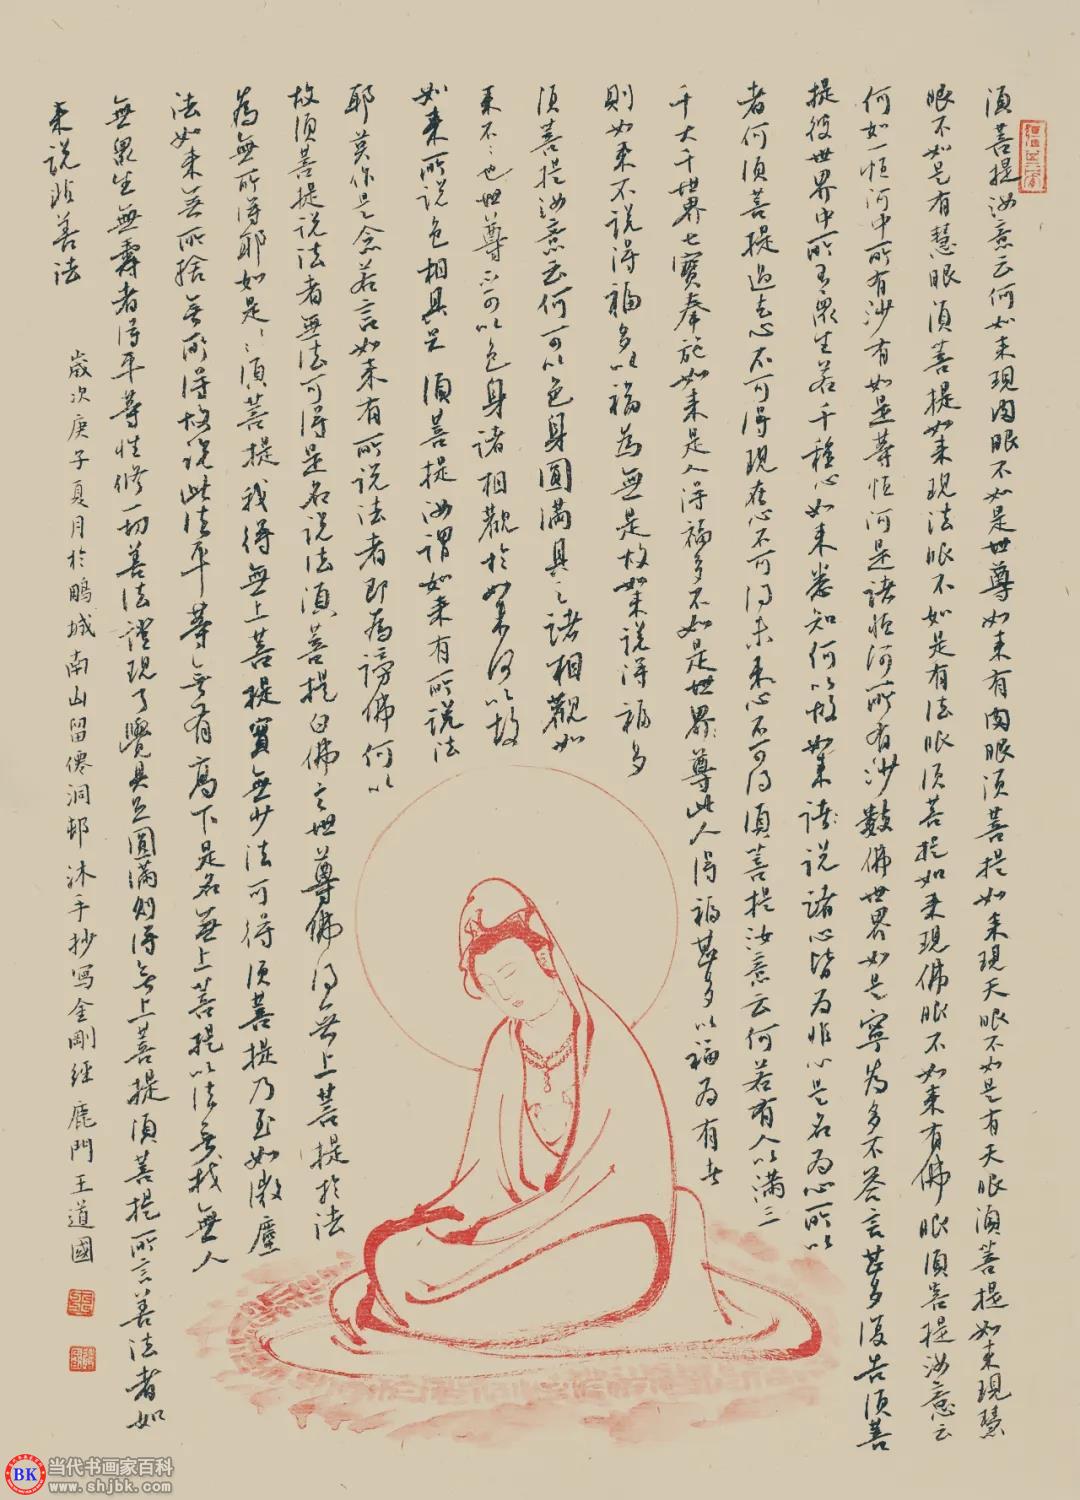 須菩提汝意云何如来現肉眼不如是世尊如来有肉眼須菩提如来現天眼不如是有天眼須菩提如来現慧
眼不如是有慧眼須菩提如来現法眼不如是有法眼須菩提如来現佛眼不如来有佛眼須菩提汝意云
何如一恒河中所有沙有如是等恒河是諸恒河所有沙數佛世界如是寧為多不答言甚多復告須菩
提彼世界中所有衆生若干種心如来悉知何以故如来說諸心皆为非心是名为心所以
者何須菩提過去心不可得現在心不可得未来心不可得須菩提汝意云何若有人以满三
千大千世界七寶奉施如来是人得福多不如是世界尊此人得福甚多以福为有者
則如来不說得福多以福為無是故如来說得福多
須菩提汝意云何可以色身圓满具足諸相觀如
来不:也世尊不可以色身諸相觀於如来何以故
如来所說色相具足須菩提汝謂如来有所說法
耶莫作是念若言如来有所說法者即為謗佛何以
故須菩提說法者無法可得是名說法須菩提白佛言世尊佛得無上菩提於法
為無所得耶如是:須菩提我得無上菩提實無少法可得須菩提乃至如微塵
法如来無所捨無所得故說此法平等無有高下是名無上菩提以法無我無人
無衆生無壽者得平等性修一切善法證現了覺具足圓满則得無上菩提須菩提所言善法者如
来說非善法
歲次庚子夏月於鵬城南山留僊洞邨沐手抄写金剛經鹿門王道國
BK 当代书画家百科
www.shjbk.com